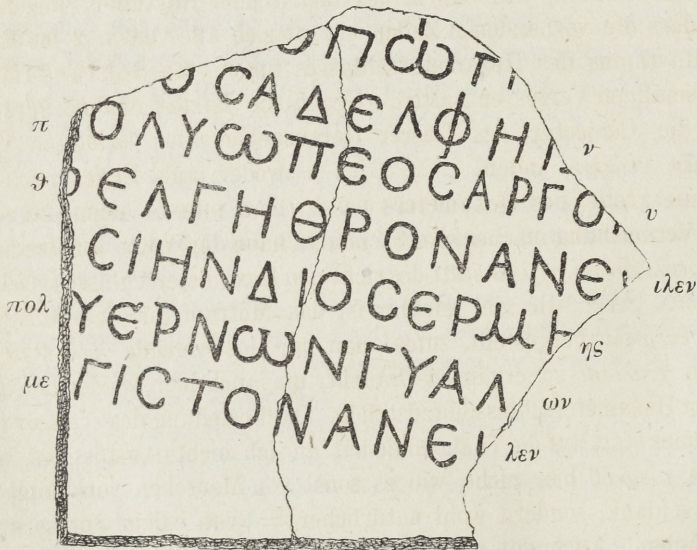 ΠΩΤΙ
ΟCΑΔΕΛΦΗΙ ν
π ΟΛΥΩΠΕΟCΑΡΓΟ υ
ϑ ΕΛΓΗΘΡΟΝΑΝΕ ιλεν
CΙΗΝΔΙΟCΕΡΜΗ ης
πολ ΥΕΡΝΩΝΓΥΑΛ ων
με ΓΙCΤΟΝΑΝΕΙ λεν